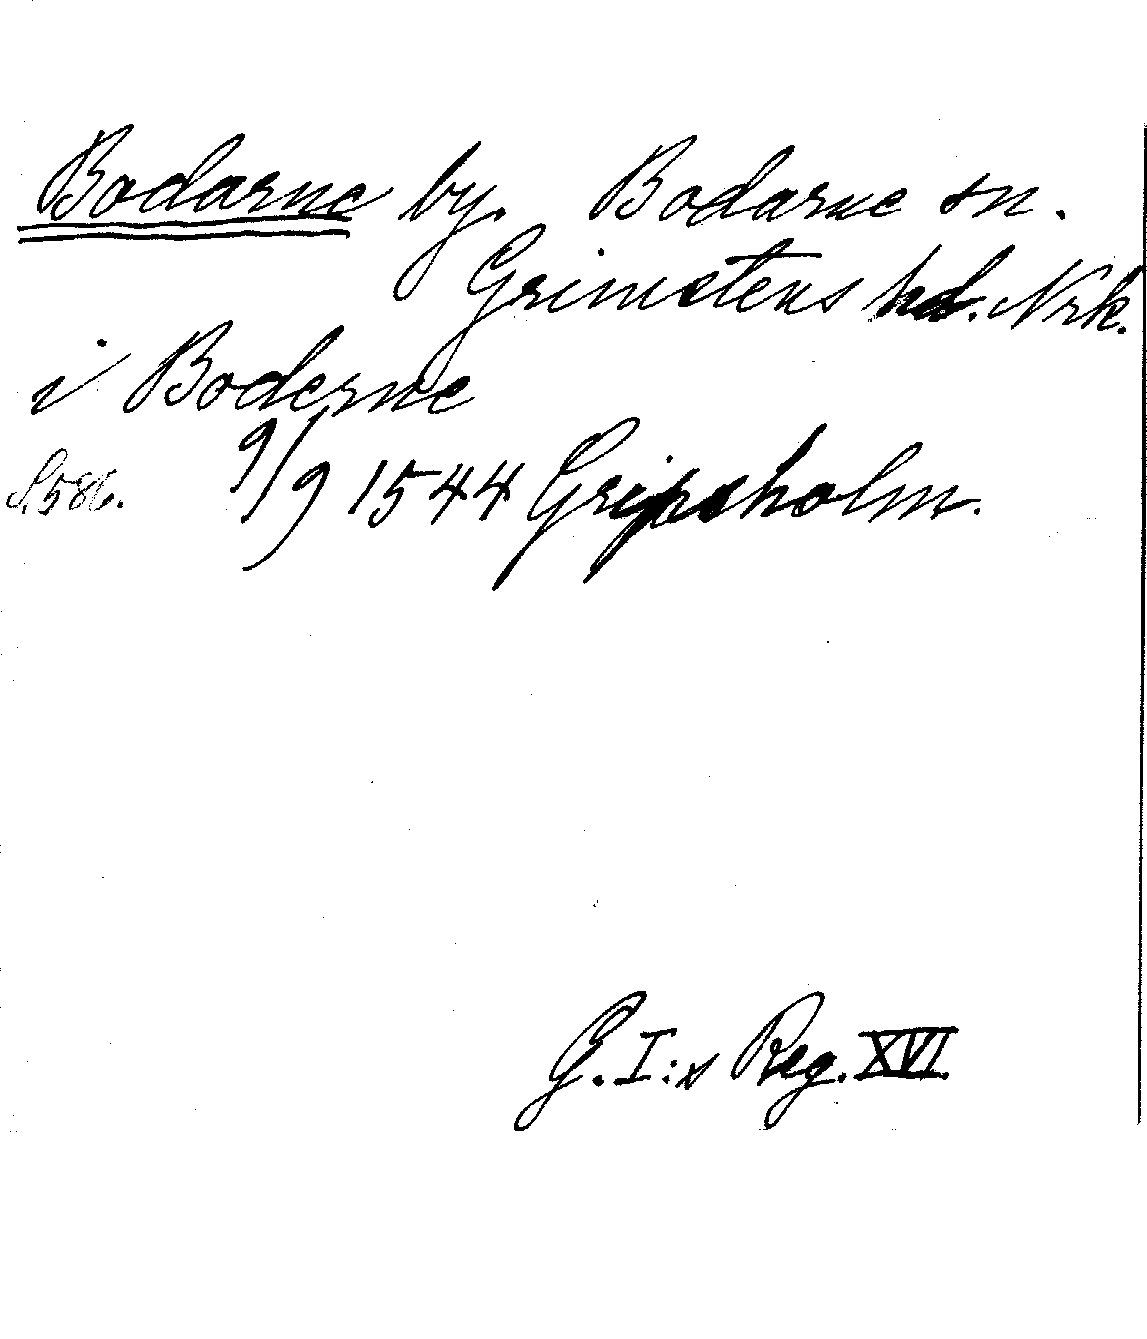 Bodarne by. Bodarne sn.
Grimstens hd. Nrk.
i Boderne
S. 586. 9/9 1544 Gripsholm.
G. I:s Reg. XVI.